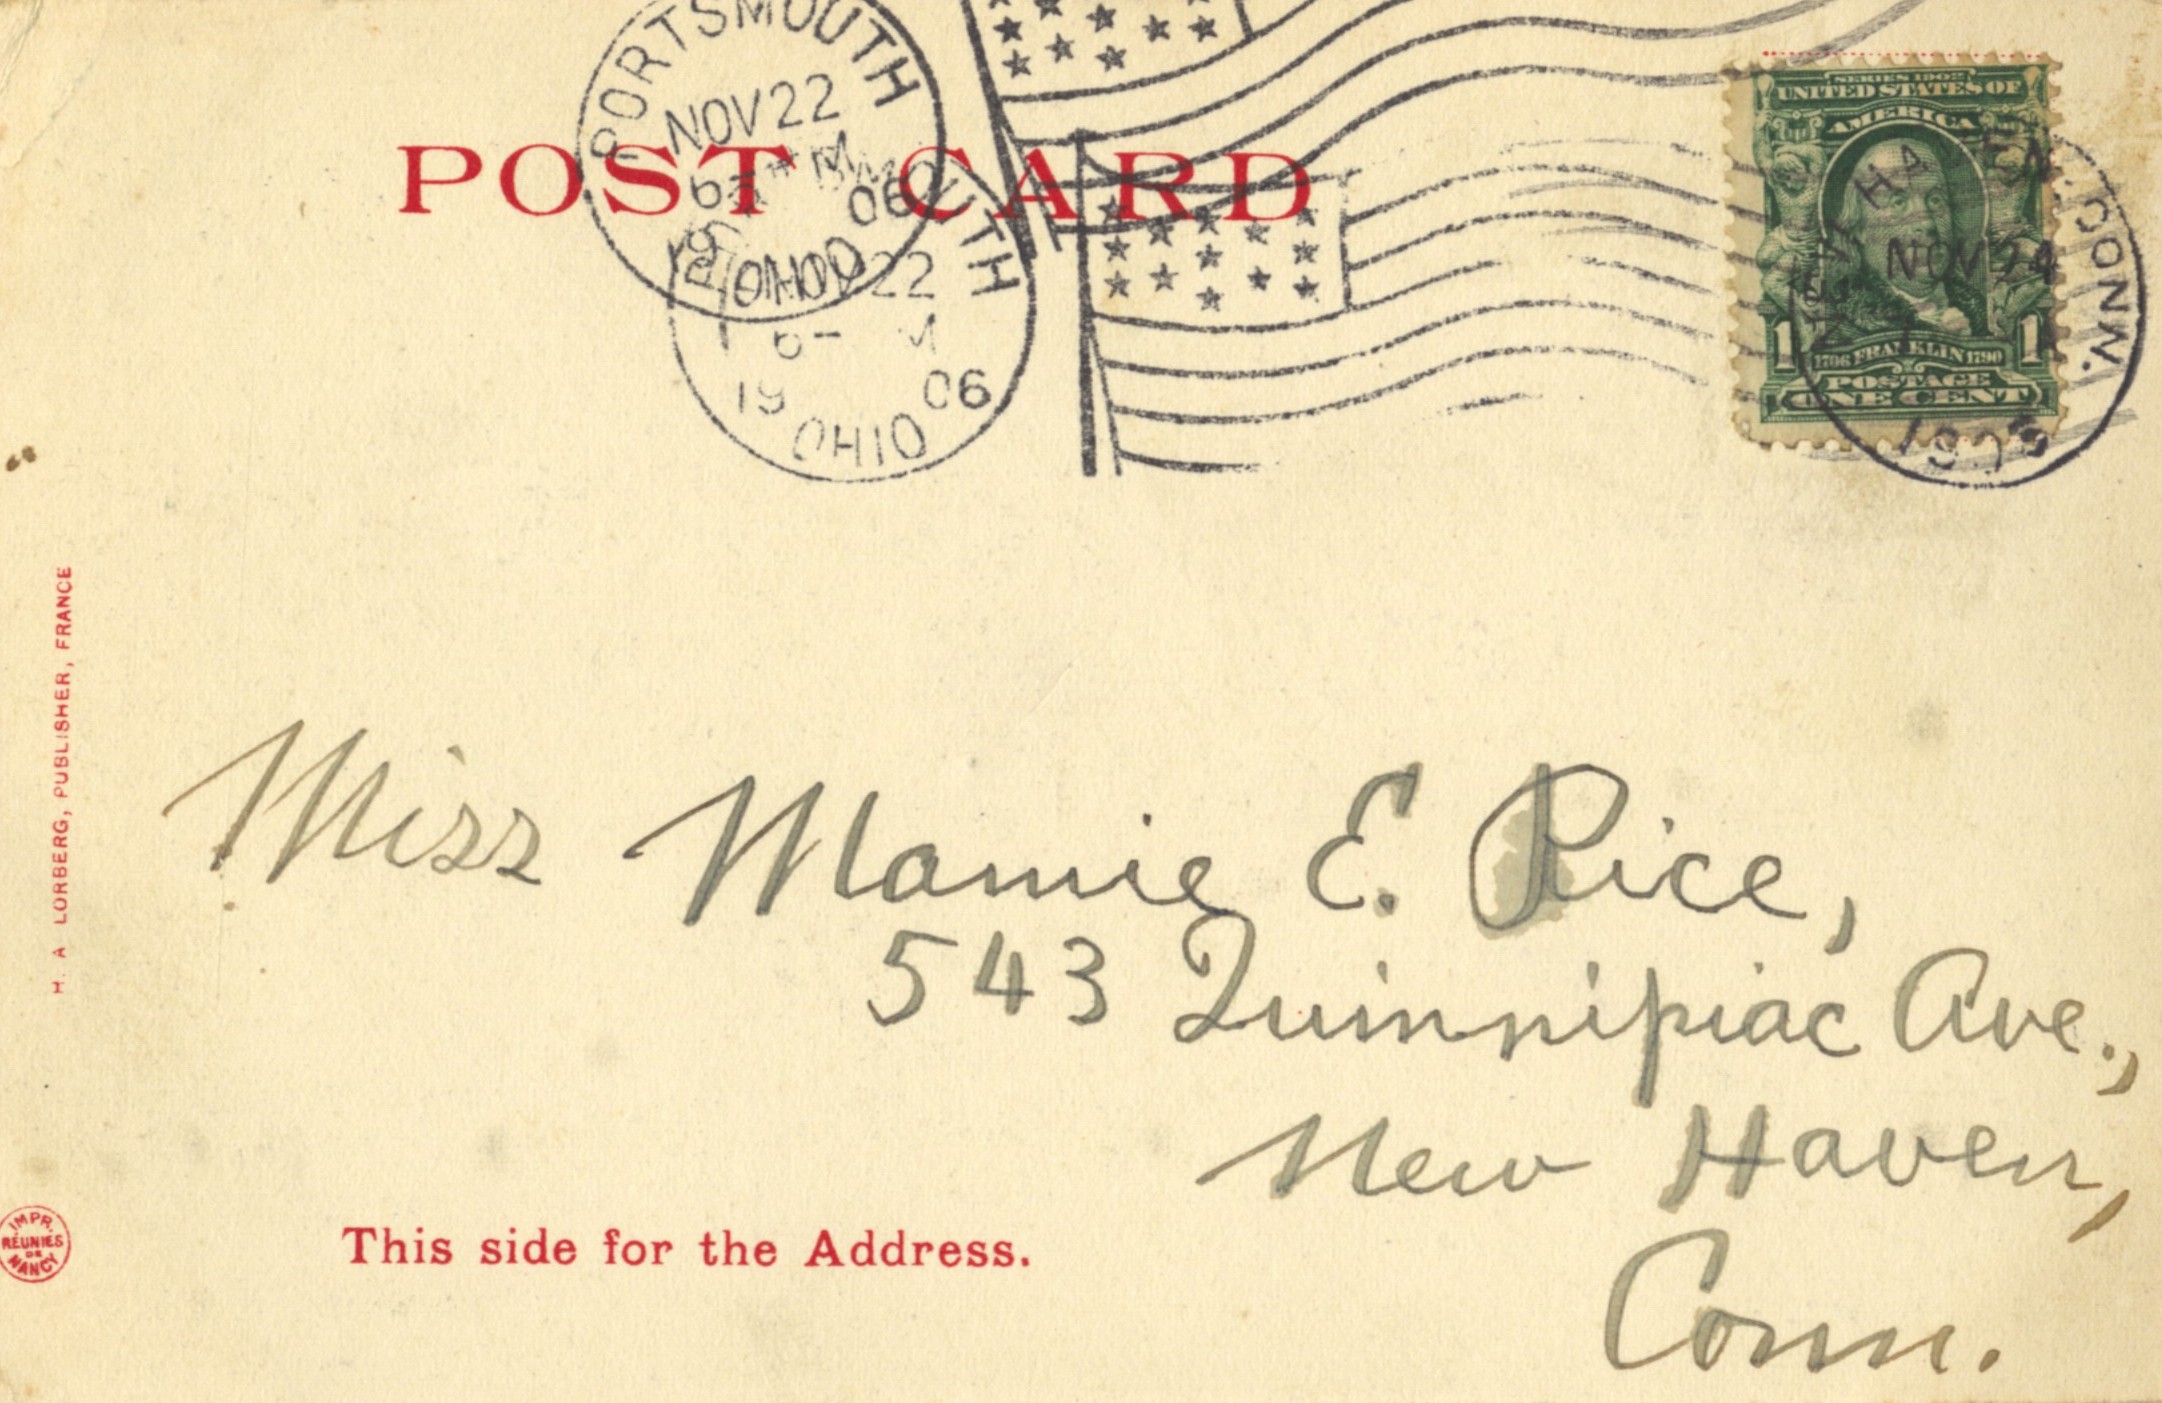 PORTSMOUTH
NOV 22
6
19 06
OHIO
POST CARD
NOV 22
6-
19 06
OHIO
SERIES 1902
UNITED STATES OF
AMERICA
1706 FRANKLIN 1790
1 1
POSTAGE
ONE CENT
HAVEN, CONN.
NOV 24
Miss Mamie E. Rice,
543 Quinnipiac Ave.,
New Haven,
Conn.
This side for the Address.
H. A LORBERG, PUBLISHER, FRANCE
IMPR.
RÉUNIES
DE
NANCY